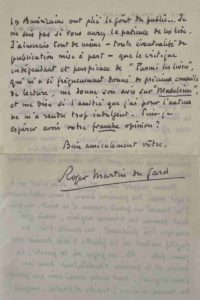 les Barinzains ont plié le goût du public... Je
ne sais pas si vous aurez la patience de les lire.
J'aimerais tout de même – toute éventualité de
publication mise à part – que le critique
indépendant et perspicace de "Parmi les livres",
qui m'a si fréquemment donné de précieux conseils
de lecture, me donne son avis sur "Madeleine",
et me dise si l'amitié que j'ai pour l'auteur
ne m'a rendu trop indulgent. Puis-je
espérer avoir votre franche opinion ?
Bien amicalement vôtre,
Roger Martin du Gard